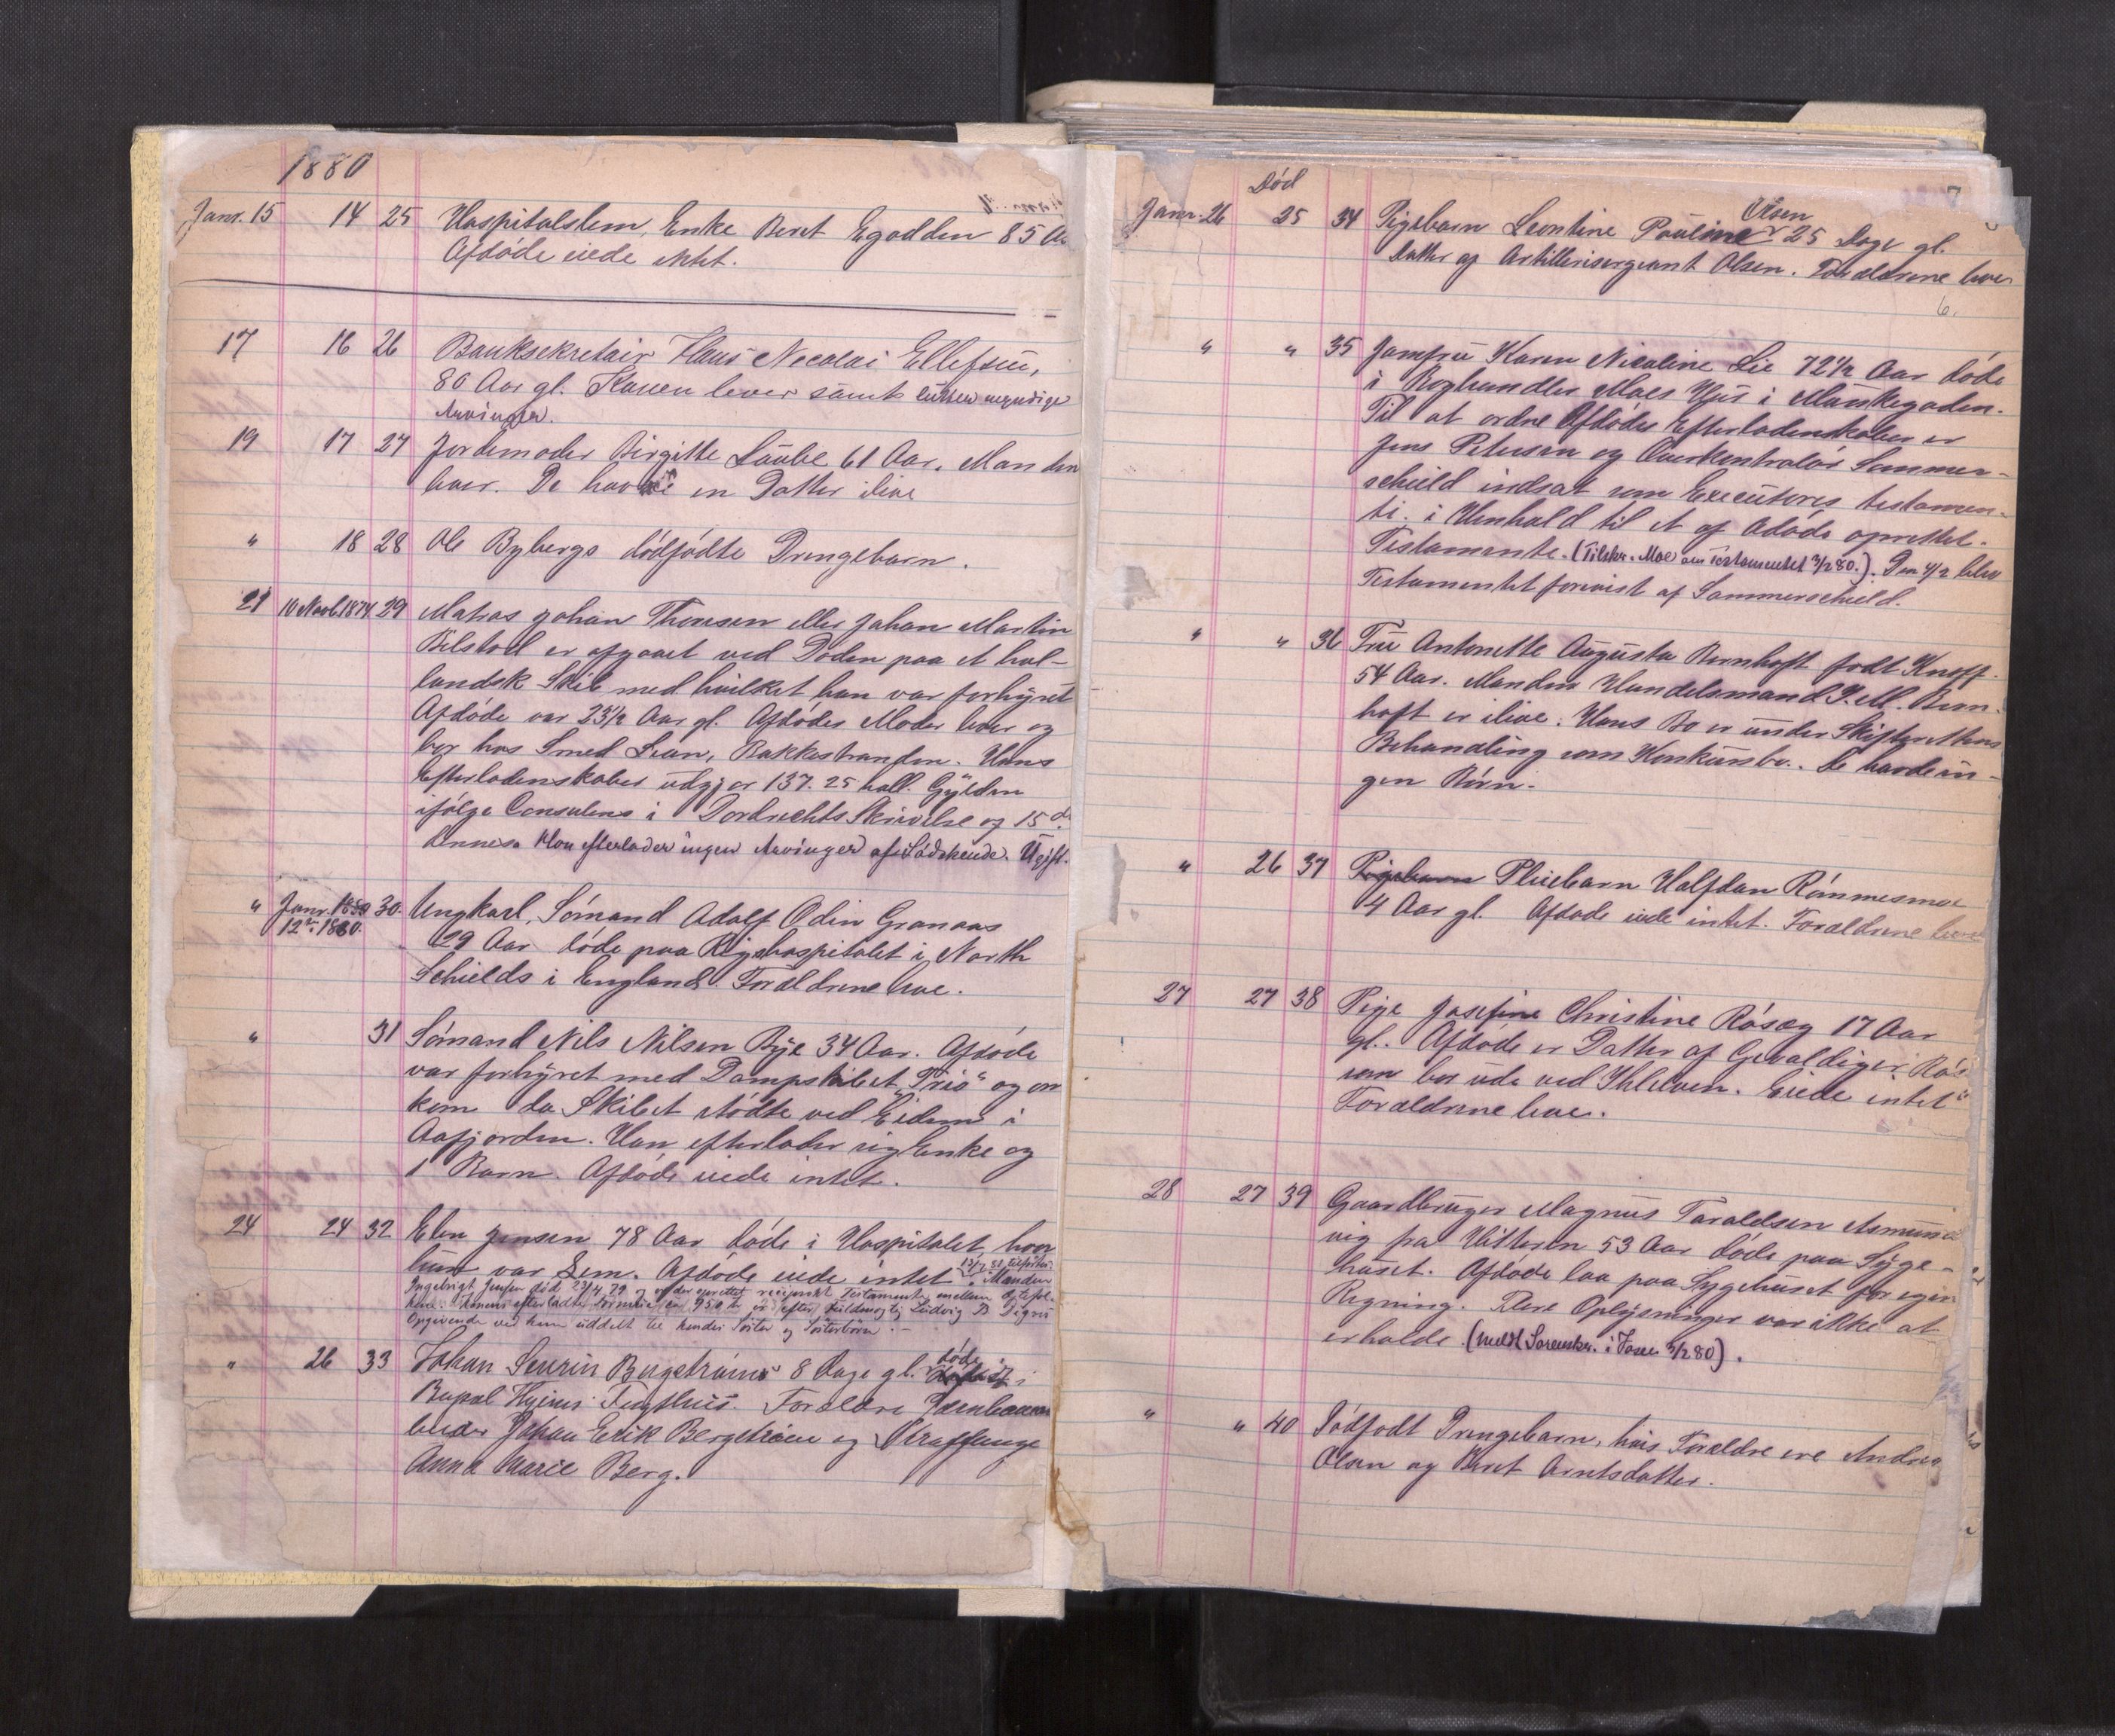 1880
Janr. 15 14 25 Hospitalslem, Enke Beret Egodden 85 Aar
Afdøde eiede intet.
17 16 26 Banksekretair Hans Nicolai Ellefsen,
80 Aar gl. Konen lever samt myndige
Arvinger.
19 17 27 Jordemoder Birgitte Laube 61 Aar. Manden
lever. De havde en Datter ilive
" 18 28 Ole Bybergs dødfødte Drengebarn.
21 10 Novb. 1874 29 Matros Johan Thomsen eller Johan Martin
Bilstad er afgaaet ved Døden paa et hol-
landsk Skib med hvilket han var forhyret
Afdøde var 23½ Aar gl. Afdødes Moder lever og
bor hos Smed Lean, Bakkestranden. Hans
Efterladenskaber udgjør 137.25 holl. Gylden
ifølge Consulens i Dordrechts Skrivelse af 15 d.
dennes. Han efterlader ingen Arvinger af Sødskende. Ugift.
" Janr. 30. Ungkarl, Sømand Adolf Odin Granaas
12te 1880. 29 Aar døde paa Rigshospitalet i North
Schields i England. Forældrene leve.
" 31 Sømand Nils Nilsen Bye 34 Aar. Afdøde
var forhyret med Dampskibet "Trio" og om
kom da Skibet stødte ved Eidem i
Aafjorden. Han efterlader sig Enke og
1 Barn. Afdøde eiede intet.
24 24 32 Elen Jensen 78 Aar døde i Hospitalet, hvor
hun var Lem. Afdøde eiede intet. Manden
Ingebrigt Jensen død 23/4 79 og efter oprettet reciprokt Testament mellem Ægtefol-
kene. Konens efterladte Formue ca 950 kr er efter Ludvig B.
Opgivende ved ham uddelt til hendes Søster og Søsterbørn.
" 26 33 Johan Severin Bergstrøms 8 Dage gl. døde i
Hjeims Forældre
Johan Erik Bergstrøm og
Anna Marie Berg.
7
Død
Janr. 26 25 34 Pigebarn Leontine Pauline Olsen 25 Dage gl.
Datter af Artillerisergeant Olsen. Forældrene lever
6.
" " 35 Jomfru Karen Nicoline Lie 72½ Aar døde
i Boghandler Moes Hus i Munkegaden.
Til at ordne Afdødes Efterladenskaber er
Jens Petersen og Overkontrolør Sommer-
schield indsat som Executores testamen-
ti. i Henhold til et af Afdøde oprettet
Testamente. (Tilskr. Moe om Testamentet 3/2 80.). Den 4/2 blev
Testamentet forevist af Sommerschield.
" " 36 Fru Antonette Augusta Bernhoft født Knoff
54 Aar. Manden Handelsmand J. M. Bern-
hoft er ilive. Hans Bo er under Skifterettens
Behandling som Konkursbo. De havde in-
gen Børn.
" 26 37 Pigebarn Pleiebarn Halfdan Rønnesmoe
4 Aar gl. Afdøde eiede intet. Forældrene leve
27 27 38 Pige Josefine Christine Røsæg 17 Aar
gl. Afdøde er Datter af Gevaldiger Røs
som bor ude ved Ihlelven. Eiede intet
Forældrene leve.
28 27 39 Gaardbruger Magnus Taraldsen Asmund
vig fra Hitteren 53 Aar døde paa Syge-
huset. Afdøde laa paa Sygehuset for egen
Regning. Flere Oplysninger var ikke at
erholde (meldt Sorenskr. i Fosen 3/2 80).
" " 40 Dødfødt Drengebarn, hvis Forældre ere Andreas
Olsen og Beret Arntsdatter.